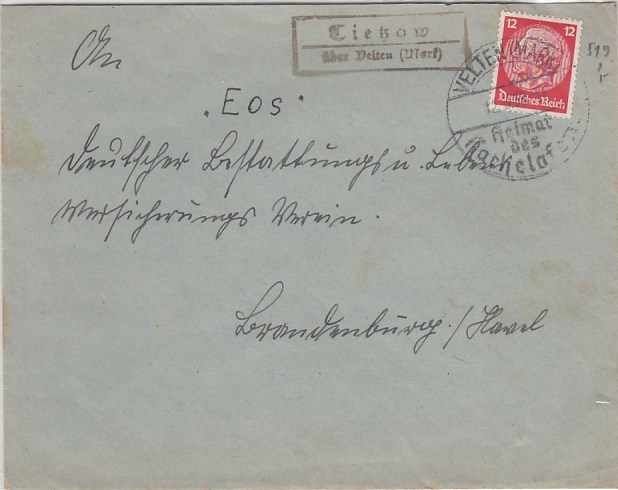 Tietzow
über Velten (Mark)
12 12
Deutsches Reich
VELTEN (MARK)
Heimat
des
Kachelofens
519
An
"Eos"
Deutscher Bestattungs u. Leben
Versicherungs Verein.
Brandenburg/Havel